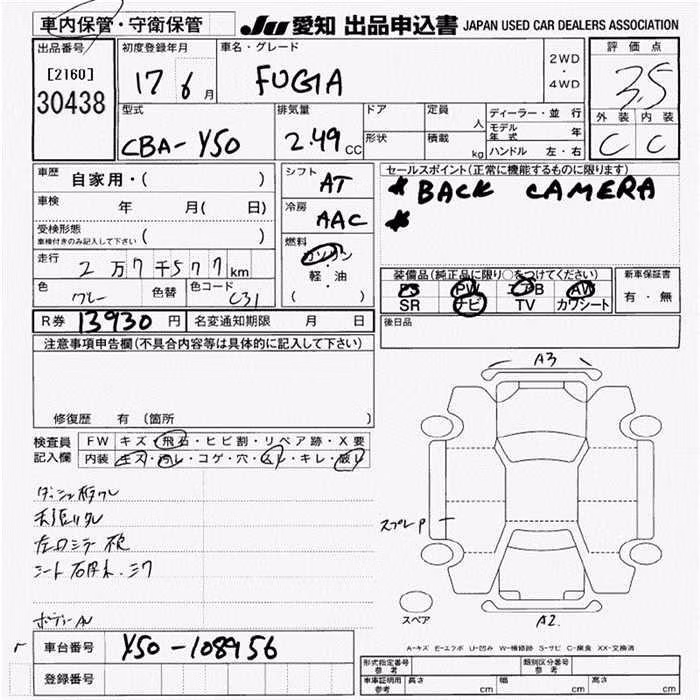 車内保管・守衛保管
JU 愛知 出品申込書 JAPAN USED CAR DEALERS ASSOCIATION
出品番号
[2160]
30438
初度登録年月
17 6 月
車名・グレード
FUGIA
2WD
・
4WD
評価点
3.5
外装 内装
C C
型式
CBA-Y50
排気量
2.49 CC
ドア
形状
定員
人
積載
kg
ディーラー・並行
モデル年式 年
ハンドル 左・右
車歴 自家用・( )
車検 年 月( 日)
受検形態
車検付きのみ記入して下さい ( )
走行 2万7千577km
色 グレー 色替 色コード C31
シフト AT
冷房 AAC
燃料
ガソリン
軽・油
( )
セールスポイント(正常に機能するものに限ります)
* BACK CAMERA
*
装備品(純正品に限り○をつけてください)
PS PW AB AW
SR ナビ TV カワシート
新車保証書
有・無
R券 13930円 名変通知期限 月 日
後日品
注意事項申告欄(不具合内容等は具体的に記入して下さい)
修復歴 有 (箇所 )
検査員
記入欄
FW キズ・飛石・ヒビ割・リペア跡・X要
内装 キズ・汚レ・コゲ・穴・ムレ・キレ・破レ
A3
スプレP
スペア
A2
A-キズ E-エクボ U-凹み W-補修跡 S-サビ C-腐食 XX-交換済
車台番号 Y50-108956
登録番号
形式指定番号
参考
類別区分番号
参考
車庫証明用
参考
長さ cm 幅 cm 高さ cm